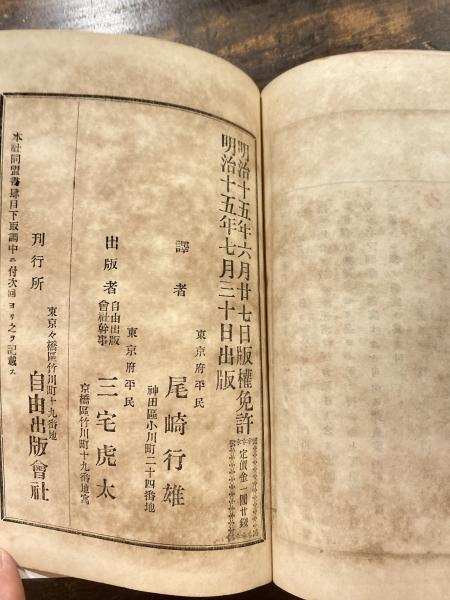 明治十五年六月廿七日版權免許
明治十五年七月三十日出版
定價金一圓廿錢
東京府平民
譯者
尾崎行雄
神田區小川町二十四番地
東京府平民
出版者
自由出版
會社幹事
三宅虎太
京橋區竹川町十九番地寓
東京々橋區竹川町十九番地
刊行所
自由出版會社
本社同盟書肆目下取調中ニ付次回ヨリ之ヲ記載ス